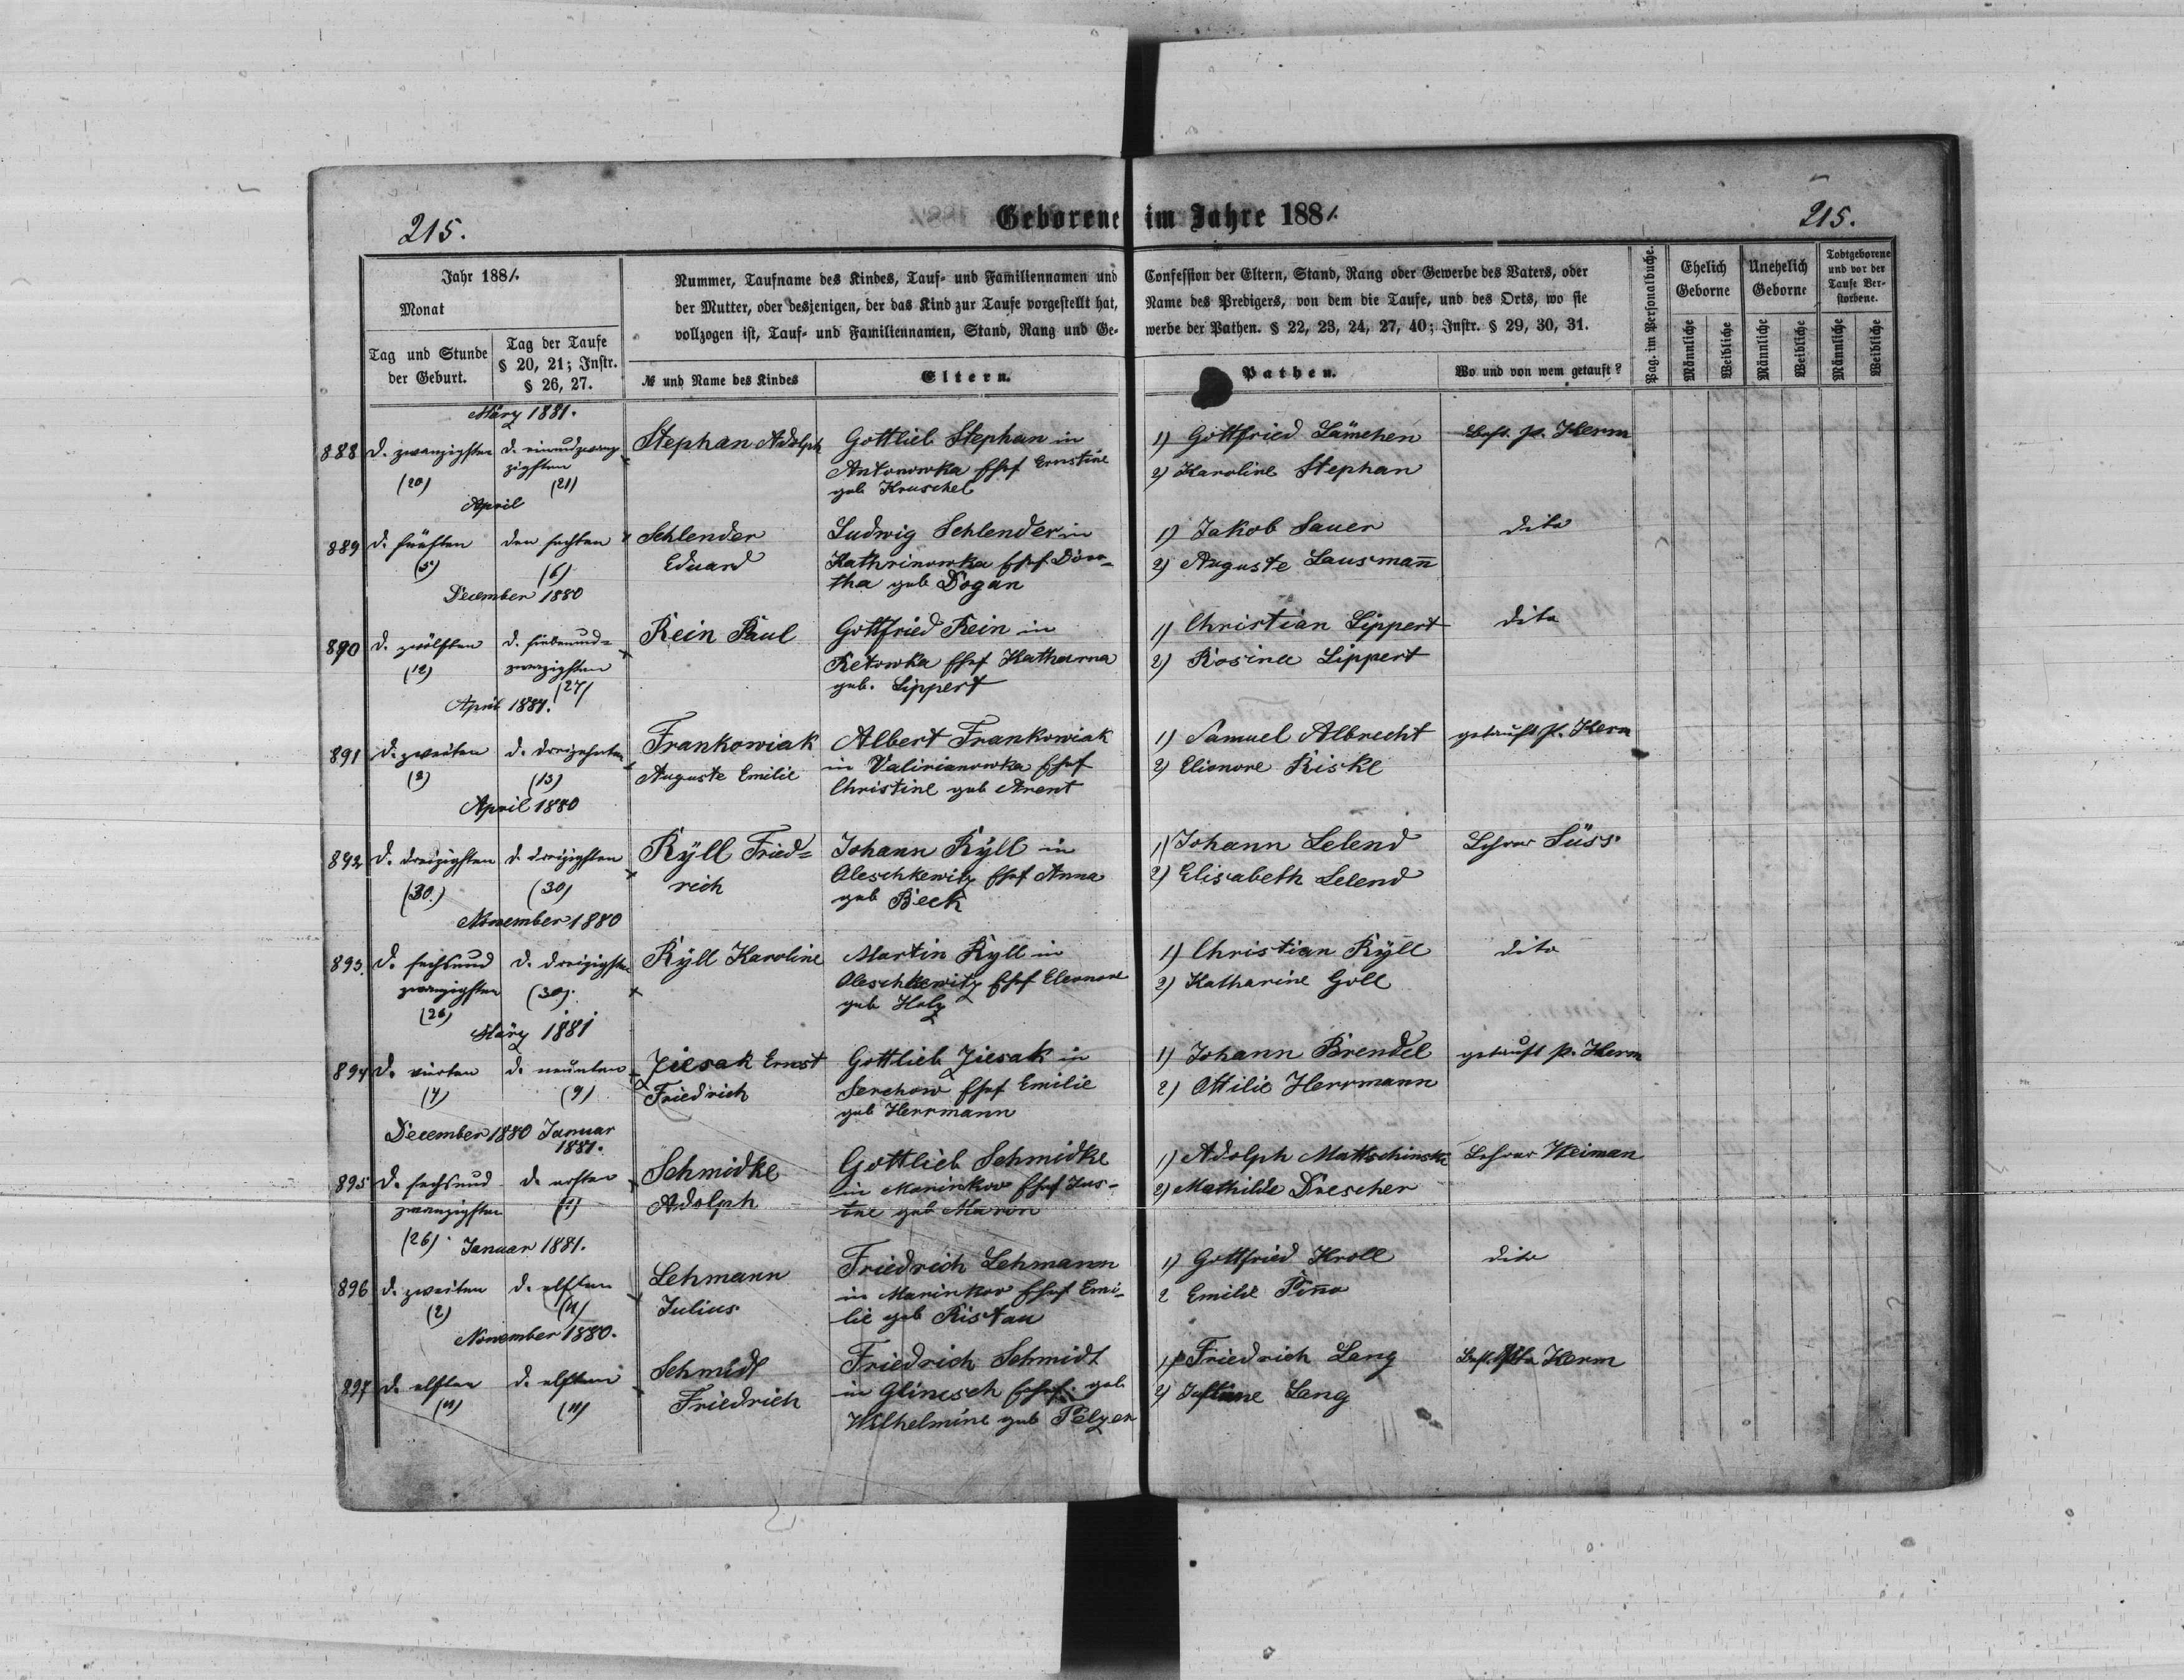 215.
Geborene im Jahre 1881.
215.
Jahr 1881.
Monat
Tag und Stunde der Geburt.
Tag der Taufe § 20, 21; Instr. § 26, 27.
Nummer, Taufname des Kindes, Tauf- und Familiennamen und
der Mutter, oder desjenigen, der das Kind zur Taufe vorgestellt hat,
vollzogen ist, Tauf- und Familiennamen, Stand, Rang und Ge-
№ und Name des Kindes
Eltern.
Confession der Eltern, Stand, Rang oder Gewerbe des Vaters, oder
Name des Predigers, von dem die Taufe, und des Orts, wo sie
werbe der Pathen. § 22, 23, 24, 27, 40; Instr. § 29, 30, 31.
Pathen.
Wo und von wem getauft?
Pag. im Personalbuche.
Ehelich Geborne
Unehelich Geborne
Todtgeborene und vor der Taufe Verstorbene.
Männliche
Weibliche
Männliche
Weibliche
Männliche
Weibliche
März 1881.
888 d. zwanzigsten (20)
d. einundzwanzigsten (21)
Stephan Adolph
Gottlieb Stephan in
Antonowka Ehef Ernstine
geb Kruschel
1) Gottfried Lämchen
2) Karoline Stephan
p. Herm
April
889 d. fünften (5)
den sechsten (6)
Schlender
Eduard
Ludwig Schlender in
Kathrinowka Ehef Doro-
tha geb Dogan
1) Jakob Sauer
2) Auguste Lausmañ
dito
December 1880
890 d. zwölften (12)
d. siebenund-
zwanzigsten (27)
Rein Paul
Gottfried Rein in
Retowka Ehef Katharna
geb. Lippert
1) Christian Lippert
2) Rosine Lippert
dito
April 1881.
891 d. zweiten (2)
d. dreizehnten (13)
Frankowiak
Auguste Emilie
Albert Frankowiak
in Valirianowka Ehef
Christine geb Arent
1) Samuel Albrecht
2) Elionore Riske
getauft p. Herm
April 1880
892 d. dreizigsten (30.)
d. dreizigsten (30)
Rÿll Fried=
rich
Johann Rÿll in
Oleschkewitz Ehef Anna
geb Beck
1) Johann Lelend
2) Elisabeth Lelend
Lehrer Süss.
November 1880
893. d. sechsund
zwanzigsten (26)
d. dreizigsten (30).
Rÿll Karoline
Martin Ryll in
Oleschkewitz Ehef Eleonore
geb Holz
1) Christian Rÿll
2) Katharine Goll
dito
März 1881
894 d. vierten (4)
d. neunten (9)
Ziesak Ernst
Friedrich
Gottlieb Ziesak in
Serchow Ehef Emilie
geb Herrmann
1) Johann Brendel
2) Ottilie Herrmann
getauft p. Herm
December 1880 Januar
1881.
895 d. sechsund
zwanzigsten (26).
d. ersten (1)
Schmidke
Adolph
Gottlieb Schmidke
in Marinkow Ehef Jus-
tne geb Maron
1) Adolph Mattschinski
2) Mathilde Drescher
Lehrer Weiman
Januar 1881.
896 d. zweiten (2)
d. elften (11)
Lehmann
Julius
Friedrich Lehmann
in Marinkow Ehef Emi-
lie geb Ristau
1) Gottfried Kroll
2 Emilie Piño
dito
November 1880.
897 d. elften (11)
d. elften (11)
Schmidt
Friedrich
Friedrich Schmidt
in Glinisch Ehef. geb
Wilhelmine geb Pelzer
1) Friedrich Lang
2) Justine Lang
Herm